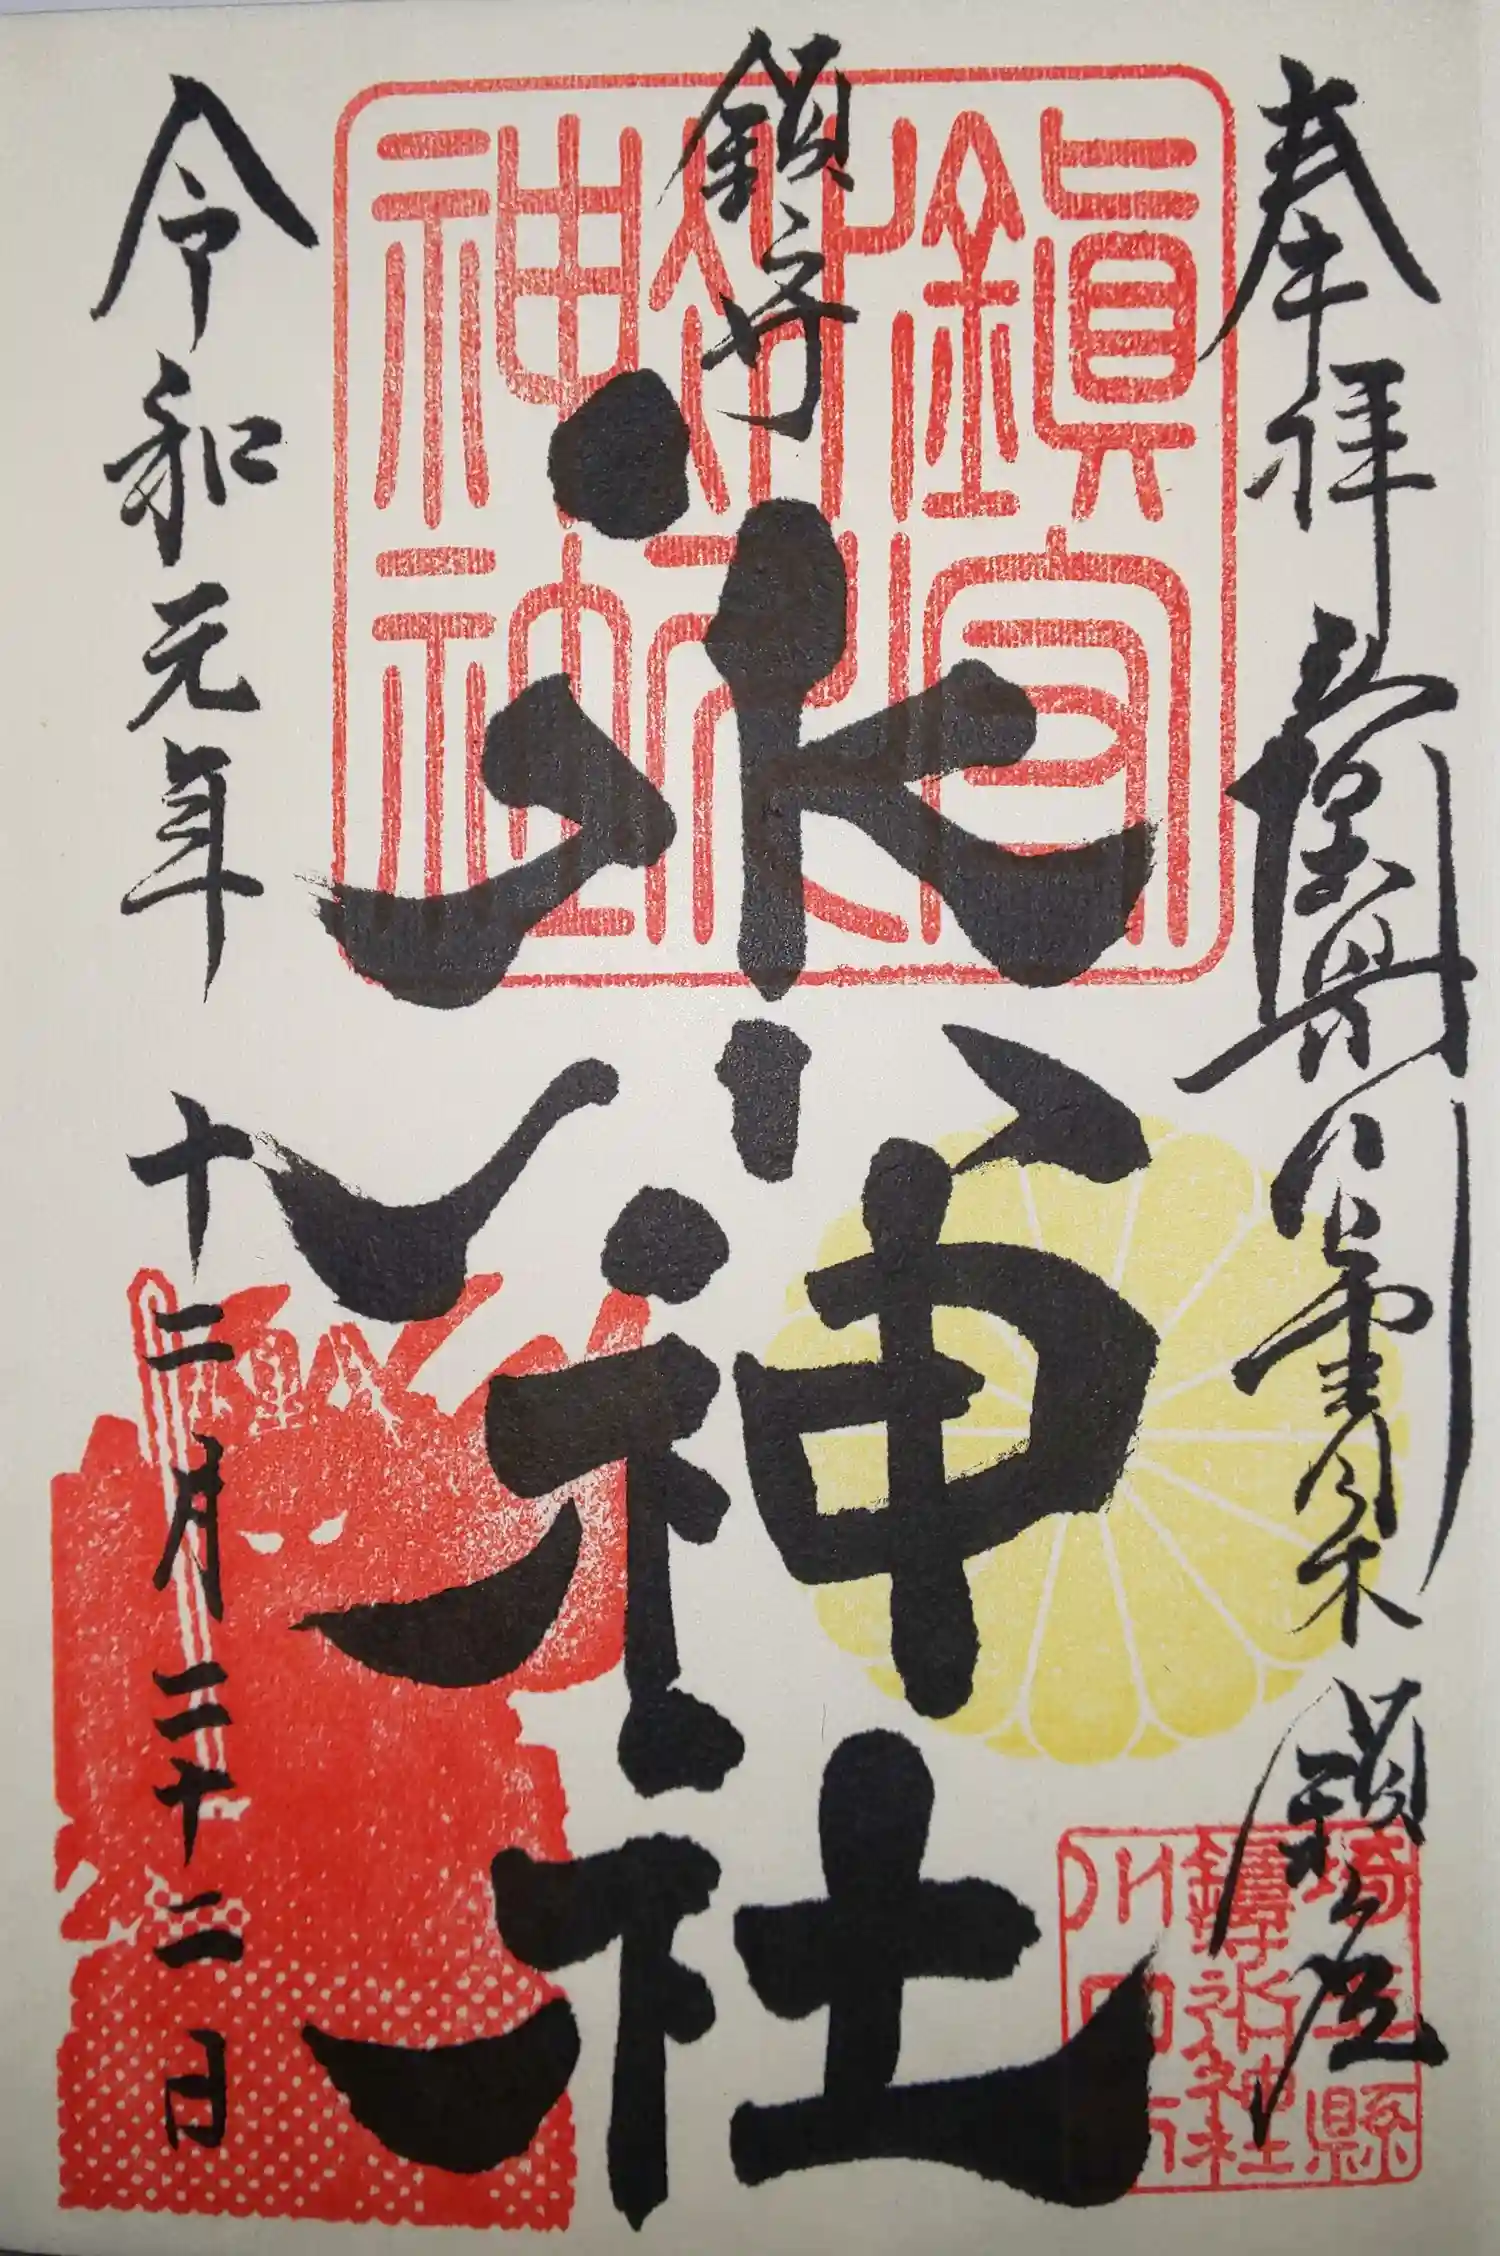 奉拝
青木 鎮座
鎮守
氷川神社
令和元年 十二月二十二日
鎭守
氷川
神社
埼玉縣
鎮守氷川神社
川口市